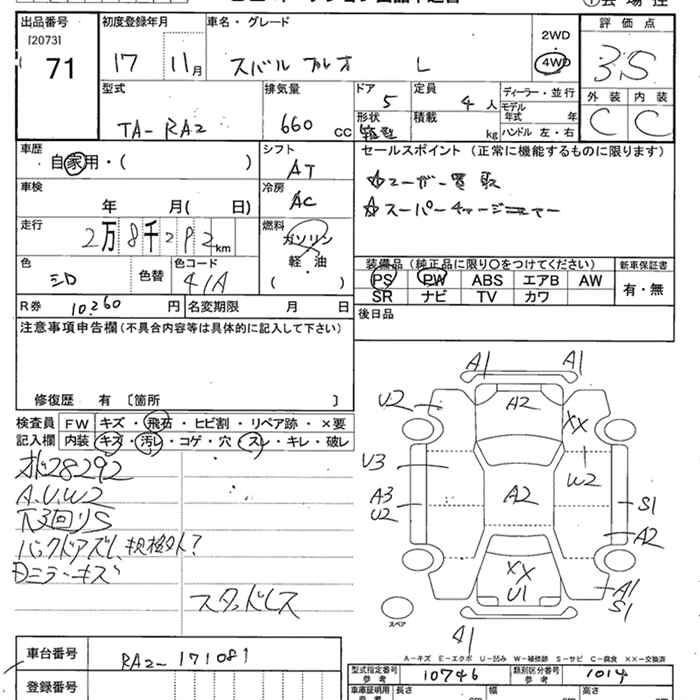 出品番号 初度登録年月 車名・グレード 2WD 評価点
[2073] 71 17 11月 スバル プレオ L 4WD 3S
型式 排気量 ドア 定員 ディーラー・並行 外装 内装
TA-RA2 660 cc 5 4人 モデル年式 年 C C
形状 箱型 積載 kg ハンドル 左・右
車歴 シフト セールスポイント (正常に機能するものに限ります)
自家用・( ) AT
☆ユーザー買取
車検 冷房
年 月( 日) AC ☆スーパーチャージャー
走行 燃料
2万8千292km ガソリン
軽・油
( )
色 色替 色コード 装備品 (純正品に限り○をつけてください) 新車保証書
シロ 41A PS PW ABS エアB AW 有・無
SR ナビ TV カワ
R券 10,260円 名変期限 月 日
後日品
注意事項申告欄(不具合内容等は具体的に記入して下さい)
修復歴 有 〔箇所 〕
検査員 FW キズ・飛石・ヒビ割・リペア跡・×要
記入欄 内装 キズ・汚レ・コゲ・穴・スレ・キレ・破レ
オド28292
A.U.W2
下回りS
バックドアガラス規格外?
ミラーキズ
スタッドレス
A1 A1
U2 A2 XX
U3 W2
A3 A2 S1
U2 A2
XX A1
U1 S1
スペア
A1
A-キズ E-エクボ U-凹み W-補修跡 S-サビ C-腐食 XX-交換済
車台番号 RA2-171081
型式指定番号 参考 10746 類別区分番号 参考 1014
登録番号
車庫証明用 参考 長さ 幅 高さ